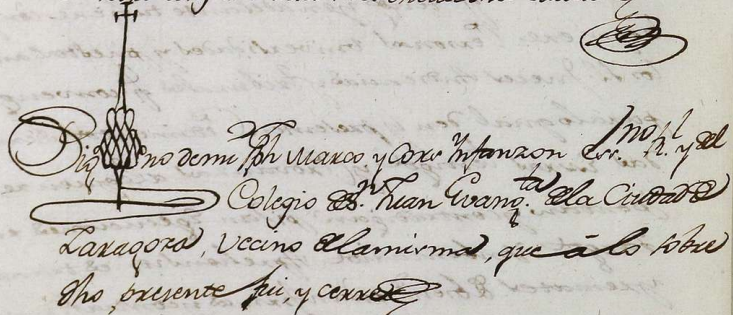 Sig no de mi Jph Marco, y Cors Infanzon Essno. Rl. y del
Colegio de Sn. Juan Evangta. de la Ciudad de
Zaragoza, vecino de la misma, que à lo sobre
dho, presente fui, y cerre